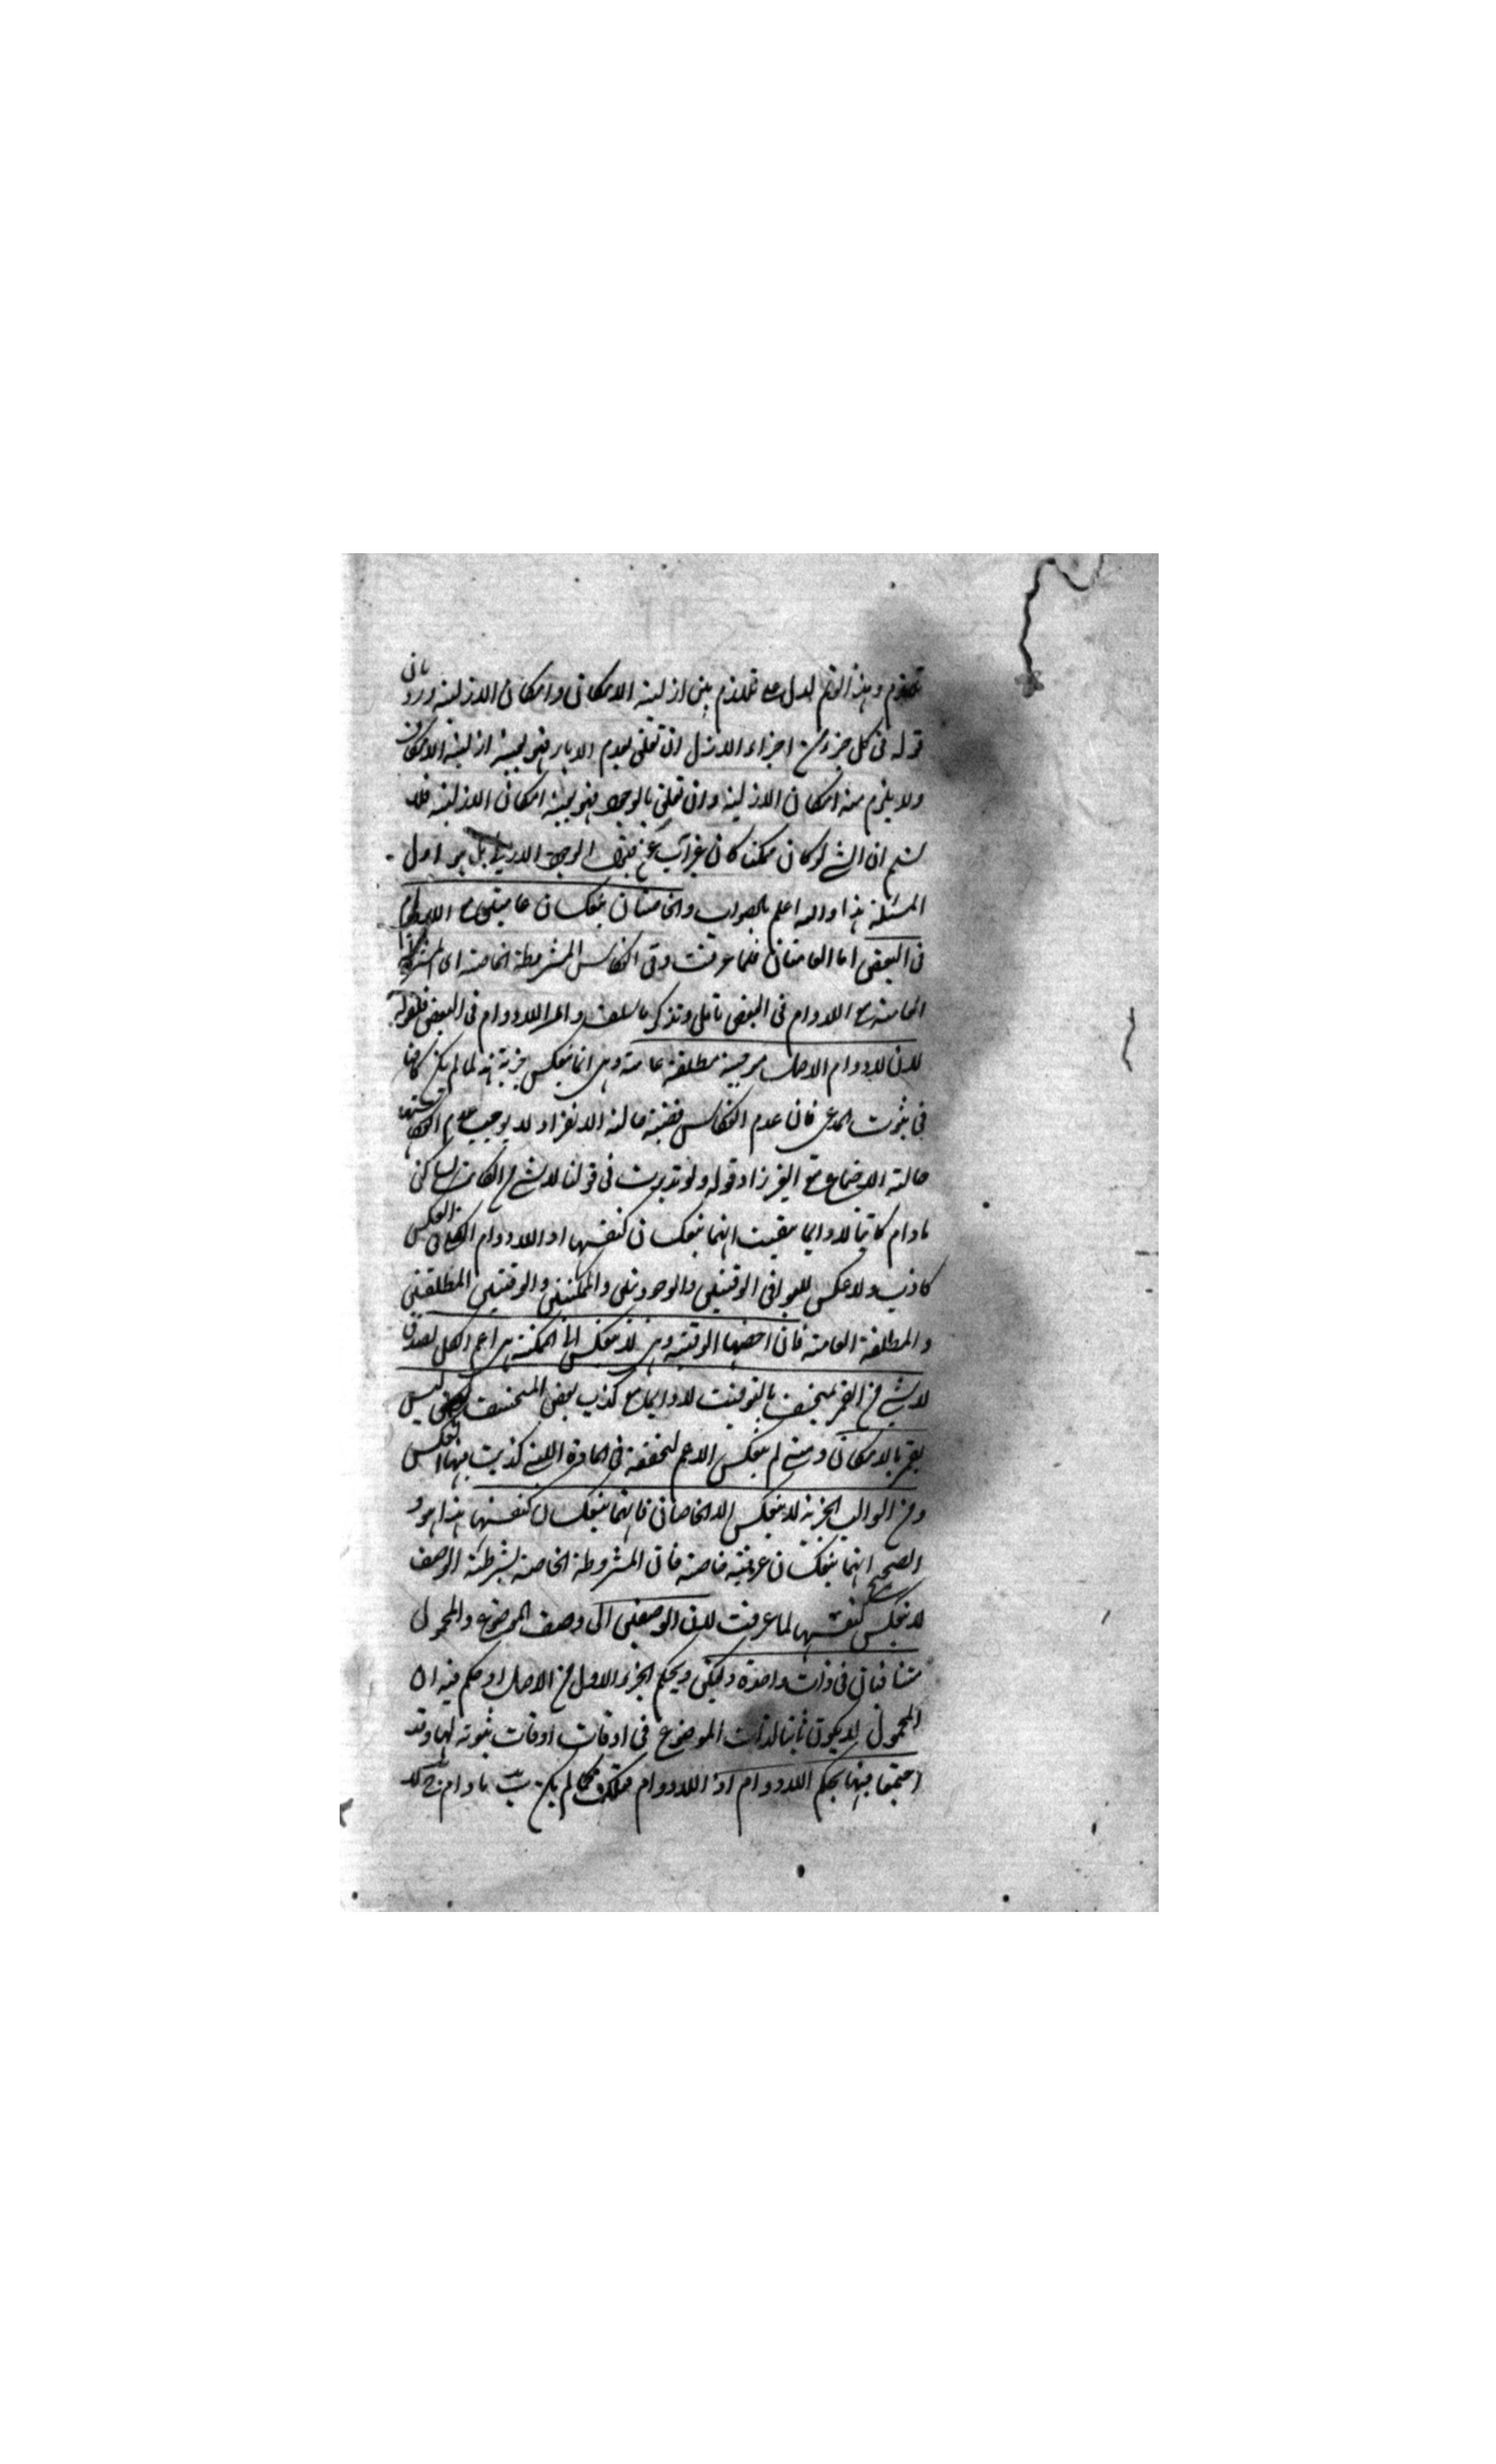 تلازم وهذا القدر يدل على تلازم بين ازلية الامكان وامكان الازلية ورد بان
قوله في كل جزء من اجزاء الازل ان تعلق بعدم الاباء فهو بعينه ازلية الامكان
ولا يلزم منه امكان الازلية وان تعلق بالوجود فهو بعينه امكان الازلية فلا
نسلم ان الشي لو كان ممكنا كان غير آب عن الوجود الازلي بل هو اول
المسئلة هذا والله اعلم بالصواب والخاصتان ينعكسان عامتين مع اللادوام
في البعض اما العامتان فلما عرفت وفي انعكاس المشروطة الخاصة الى المشروطة
العامة مع اللادوام في البعض تامل وتذكر ما سلف واما اللادوام في البعض فلقوله
لان لادوام الاصل موجبة مطلقة عامة وهي انما ينعكس جزئية هذا لما لم يكن كافيا
في ثبوت المدعى فان عدم انعكاس قضية حالة الانفراد لا يوجب عدم انعكاسها
حالة الاجتماع مع الغير زاد قوله ولو تدبرت في قولنا لا شي من الكاتب بساكن
مادام كاتبا لا دايما تيقنت انهما ينعكسان كنفسهما اذ اللادوام الكلي في العكس
كاذب ولا عكس للبواقي الوقتيتين والوجوديتين والممكنتين والوقتيتين المطلقتين
والمطلقة العامة فان اخصها الوقتية وهي لا ينعكس الى الممكنة هي اعم الكل لصدق
لا شي من القمر بمنخسف بالتوقيت لا دايما مع كذب بعض المنخسف ليس
بقمر بالامكان ومتى لم ينعكس الاعم لتحققه في المادة التي كذبت فيها العكس
ومن السوالب الجزئية لا ينعكس الا الخاصتان فانهما ينعكسان كنفسهما هذا هو و
الصحيح انهما ينعكسان عرفية خاصة فان المشروطة الخاصة بشرطية الوصف
لا ينعكس كنفسها لما عرفت لان الوصفين اي وصف الموضوع والمحمول
متنافيان في ذات واحدة وليكن ويحكم الجزء الاول من الاصل اذ حكم فيه ان
المحمول لا يكون ثابتا لذات الموضوع في اوقات اوقات ثبوته لها وقد
اجتمعا فيها بحكم اللادوام اذ اللادوام فكما لم يكن مادام ج لا